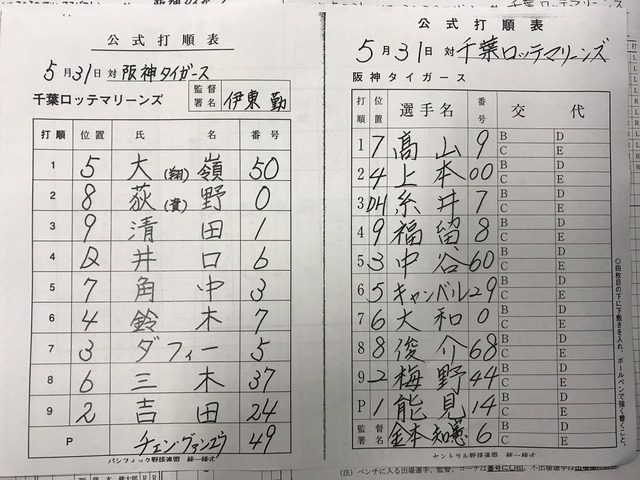 公式打順表
5月31日 対 阪神タイガース
千葉ロッテマリーンズ 監督署名 伊東 勤
打順 位置 氏 名 番号
1 5 大(翔)嶺 50
2 8 荻(貴)野 0
3 9 清田 1
4 D 井口 6
5 7 角中 3
6 4 鈴木 7
7 3 ダフィー 5
8 6 三木 37
9 2 吉田 24
P チェン・ヴァンユウ 49
パシフィック野球連盟 統一様式
公式打順表
5月31日 対 千葉ロッテマリーンズ
阪神タイガース
打順 位置 選手名 番号 交代
1 7 髙山 9 B D C E
2 4 上本 00 B D C E
3 DH 糸井 7 B D C E
4 9 福留 8 B D C E
5 3 中谷 60 B D C E
6 5 キャンベル 29 B D C E
7 6 大和 0 B D C E
8 8 俊介 68 B D C E
9 2 梅野 44 B D C E
P 1 能見 14 B D C E
監督署名 金本知憲 6
セントラル野球連盟 統一様式
◎四枚目の下に下敷きを入れ、ボールペンで強く書くこと。
(注) ベンチに入る出場選手、監督、コーチは番号に○印、不出場選手は